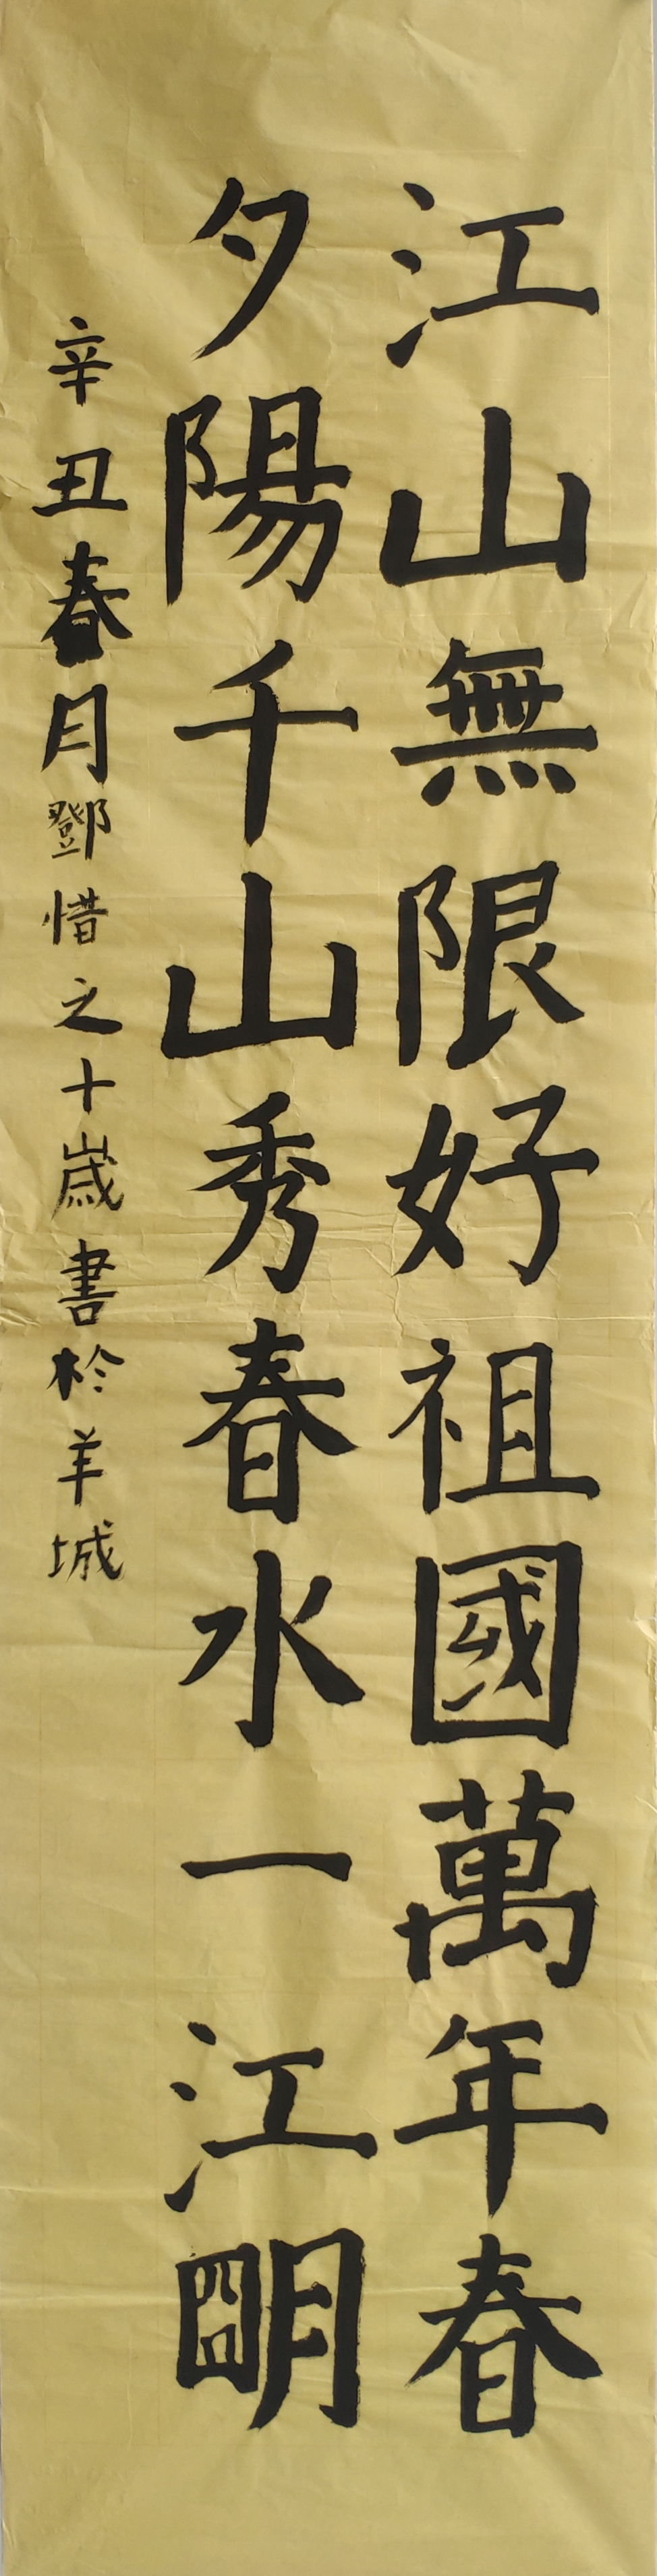 江山無限好祖國萬年春
夕陽千山秀春水一江朙
辛丑春月鄧惜之十歲書於羊城